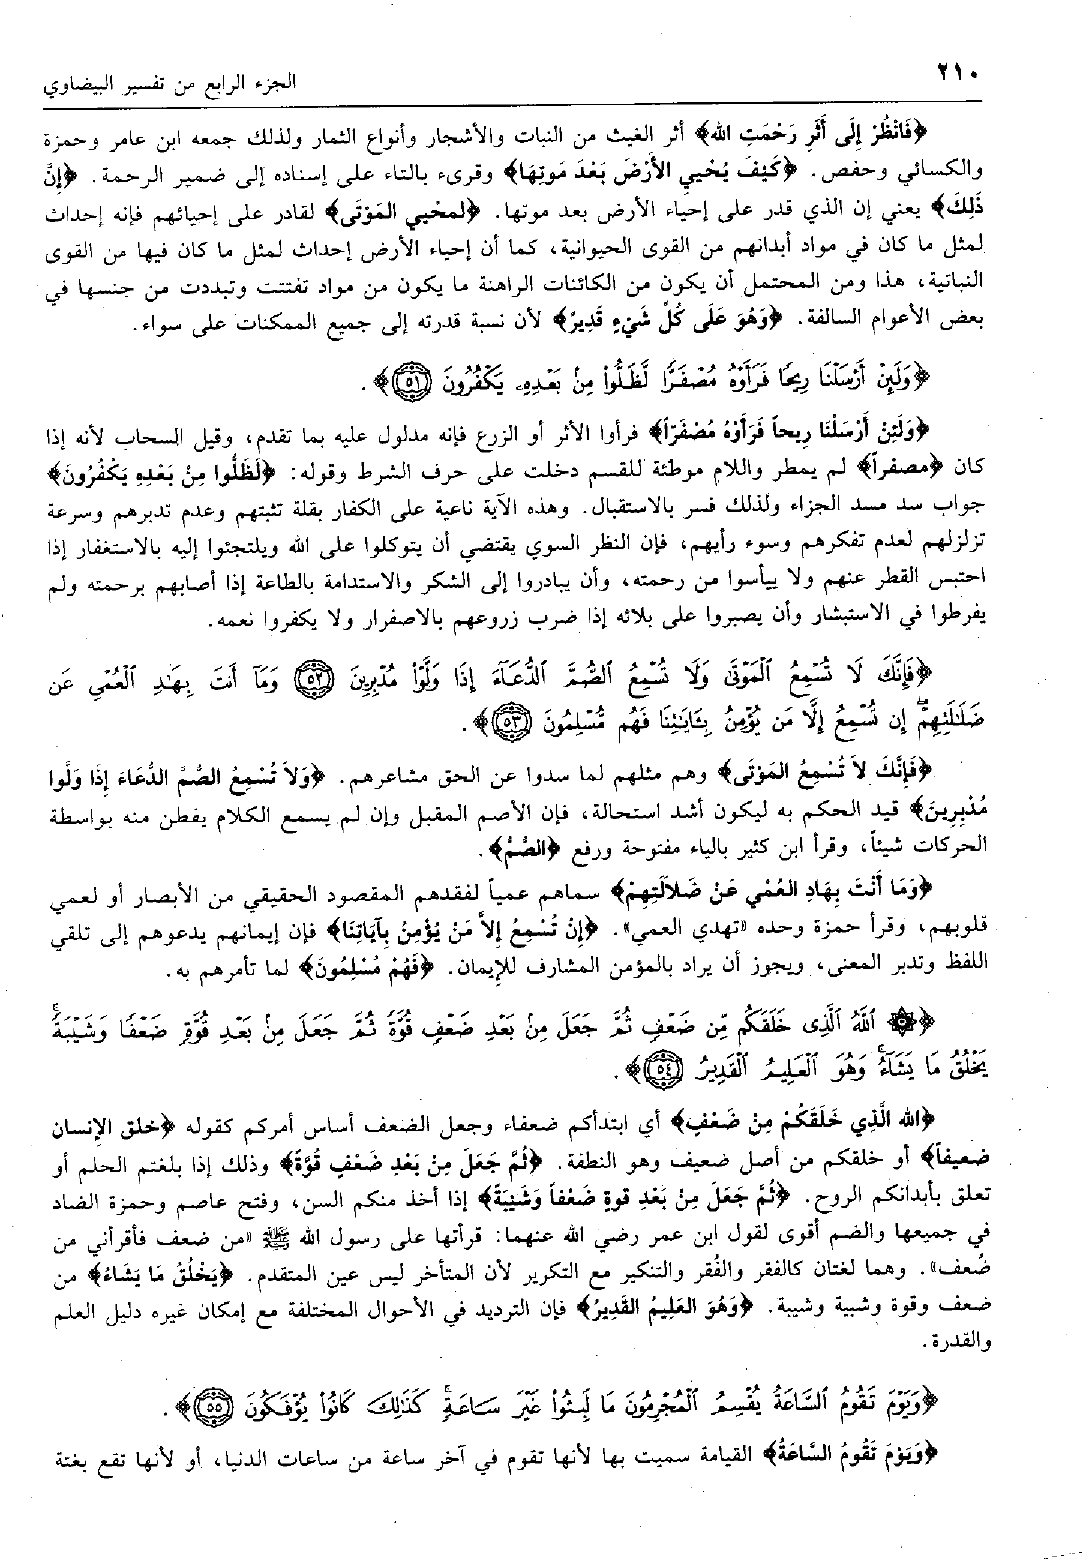 ٢١٠
الجزء الرابع من تفسير البيضاوي
﴿فَانْظُرْ إِلَى أَثَرِ رَحْمَتِ الله﴾ أثر الغيث من النبات والأشجار وأنواع الثمار ولذلك جمعه ابن عامر وحمزة
والكسائي وحفص. ﴿كَيْفَ يُحْيِي الأَرْضَ بَعْدَ مَوتِهَا﴾ وقرىء بالتاء على إسناده إلى ضمير الرحمة. ﴿إِنَّ
ذَلِكَ﴾ يعني إن الذي قدر على إحياء الأرض بعد موتها. ﴿لَمحْيِي المَوْتَى﴾ لقادر على إحيائهم فإنه إحداث
لمثل ما كان في مواد أبدانهم من القوى الحيوانية، كما أن إحياء الأرض إحداث لمثل ما كان فيها من القوى
النباتية، هذا ومن المحتمل أن يكون من الكائنات الراهنة ما يكون من مواد تفتتت وتبددت من جنسها في
بعض الأعوام السالفة. ﴿وَهُوَ عَلَى كُلِّ شَيْءٍ قَدِيرٌ﴾ لأن نسبة قدرته إلى جميع الممكنات على سواء.
﴿وَلَئِنْ أَرْسَلْنَا رِيحًا فَرَأَوْهُ مُصْفَرًّا لَّظَلُّوا۟ مِنۢ بَعْدِهِۦ يَكْفُرُونَ ﴿٥١﴾﴾.
﴿وَلَئِنْ أَرْسَلْنَا رِيحاً فَرَأَوْهُ مُصْفَرّاً﴾ فرأوا الأثر أو الزرع فإنه مدلول عليه بما تقدم، وقيل السحاب لأنه إذا
كان ﴿مصفراً﴾ لم يمطر واللام موطئة للقسم دخلت على حرف الشرط وقوله: ﴿لَظَلُّوا مِنْ بَعْدِهِ يَكْفُرُونَ﴾
جواب سد مسد الجزاء ولذلك فسر بالاستقبال. وهذه الآية ناعية على الكفار بقلة تثبتهم وعدم تدبرهم وسرعة
تزلزلهم لعدم تفكرهم وسوء رأيهم، فإن النظر السوي يقتضي أن يتوكلوا على الله ويلتجئوا إليه بالاستغفار إذا
احتبس القطر عنهم ولا ييأسوا من رحمته، وأن يبادروا إلى الشكر والاستدامة بالطاعة إذا أصابهم برحمته ولم
يفرطوا في الاستبشار وأن يصبروا على بلائه إذا ضرب زروعهم بالاصفرار ولا يكفروا نعمه.
﴿فَإِنَّكَ لَا تُسْمِعُ ٱلْمَوْتَىٰ وَلَا تُسْمِعُ ٱلصُّمَّ ٱلدُّعَآءَ إِذَا وَلَّوْا۟ مُدْبِرِينَ ﴿٥٢﴾ وَمَآ أَنتَ بِهَـٰدِ ٱلْعُمْىِ عَن
ضَلَـٰلَتِهِمْ إِن تُسْمِعُ إِلَّا مَن يُؤْمِنُ بِـَٔايَـٰتِنَا فَهُم مُّسْلِمُونَ ﴿٥٣﴾﴾.
﴿فَإِنَّكَ لاَ تُسْمِعُ المَوْتَى﴾ وهم مثلهم لما سدوا عن الحق مشاعرهم. ﴿وَلاَ تُسْمِعُ الصُّمَّ الدُّعَاءَ إِذَا وَلَّوا
مُدْبِرِينَ﴾ قيد الحكم به ليكون أشد استحالة، فإن الأصم المقبل وإن لم يسمع الكلام يفطن منه بواسطة
الحركات شيئاً، وقرأ ابن كثير بالياء مفتوحة ورفع ﴿الصُّمُ﴾.
﴿وَمَا أَنْتَ بِهَادِ العُمْيِ عَنْ ضَلاَلَتِهِمْ﴾ سماهم عمياً لفقدهم المقصود الحقيقي من الأبصار أو لعمي
قلوبهم، وقرأ حمزة وحده «تهدي العمي». ﴿إِنْ تُسْمِعُ إِلاَّ مَنْ يُؤْمِنُ بِآيَاتِنَا﴾ فإن إيمانهم يدعوهم إلى تلقي
اللفظ وتدبر المعنى، ويجوز أن يراد بالمؤمن المشارف للإيمان. ﴿فَهُمْ مُسْلِمُونَ﴾ لما تأمرهم به.
﴿۞ ٱللَّهُ ٱلَّذِى خَلَقَكُم مِّن ضَعْفٍ ثُمَّ جَعَلَ مِنۢ بَعْدِ ضَعْفٍ قُوَّةً ثُمَّ جَعَلَ مِنۢ بَعْدِ قُوَّةٍ ضَعْفًا وَشَيْبَةً ۚ
يَخْلُقُ مَا يَشَآءُ ۖ وَهُوَ ٱلْعَلِيمُ ٱلْقَدِيرُ ﴿٥٤﴾﴾.
﴿الله الَّذِي خَلَقَكُمْ مِنْ ضَعْفٍ﴾ أي ابتدأكم ضعفاء وجعل الضعف أساس أمركم كقوله ﴿خلق الإنسان
ضعيفاً﴾ أو خلقكم من أصل ضعيف وهو النطفة. ﴿ثُمَّ جَعَلَ مِنْ بَعْدِ ضَعْفٍ قُوَّةً﴾ وذلك إذا بلغتم الحلم أو
تعلق بأبدانكم الروح. ﴿ثُمَّ جَعَلَ مِنْ بَعْدِ قوةٍ ضَعْفاً وَشَيْبَةً﴾ إذا أخذ منكم السن، وفتح عاصم وحمزة الضاد
في جميعها والضم أقوى لقول ابن عمر رضي الله عنهما: قرأتها على رسول الله ﷺ «من ضعف فأقرأني من
ضُعف». وهما لغتان كالفقر والفُقر والتنكير مع التكرير لأن المتأخر ليس عين المتقدم. ﴿يَخْلُقُ مَا يَشَاءُ﴾ من
ضعف وقوة وشبية وشيبة. ﴿وَهُوَ العَلِيمُ القَدِيرُ﴾ فإن الترديد في الأحوال المختلفة مع إمكان غيره دليل العلم
والقدرة.
﴿وَيَوْمَ تَقُومُ ٱلسَّاعَةُ يُقْسِمُ ٱلْمُجْرِمُونَ مَا لَبِثُوا۟ غَيْرَ سَاعَةٍ ۚ كَذَٰلِكَ كَانُوا۟ يُؤْفَكُونَ ﴿٥٥﴾﴾.
﴿وَيَوْمَ تَقُومُ السَّاعَةُ﴾ القيامة سميت بها لأنها تقوم في آخر ساعة من ساعات الدنيا، أو لأنها تقع بغتة